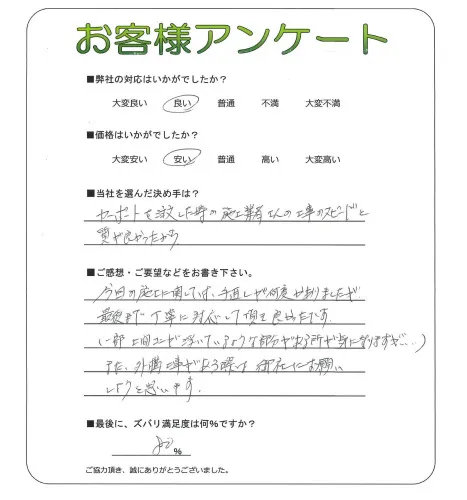 お客様アンケート
■弊社の対応はいかがでしたか？
大変良い 良い 普通 不満 大変不満
■価格はいかがでしたか？
大変安い 安い 普通 高い 大変高い
■当社を選んだ決め手は？
カーポートを注文した時の施工業者さんの工事のスピードと
質が良かったから
■ご感想・ご要望などをお書き下さい。
今回の施工に関しては、手直しが何度かありましたが
最後まで丁寧に対応して頂き良かったです。
(一部土間コンが浮いているような部分がある所が気になりますが…)
また、外構工事がある際は御社にお願い
しようと思います。
■最後に、ズバリ満足度は何％ですか？
％
ご協力頂き、誠にありがとうございました。